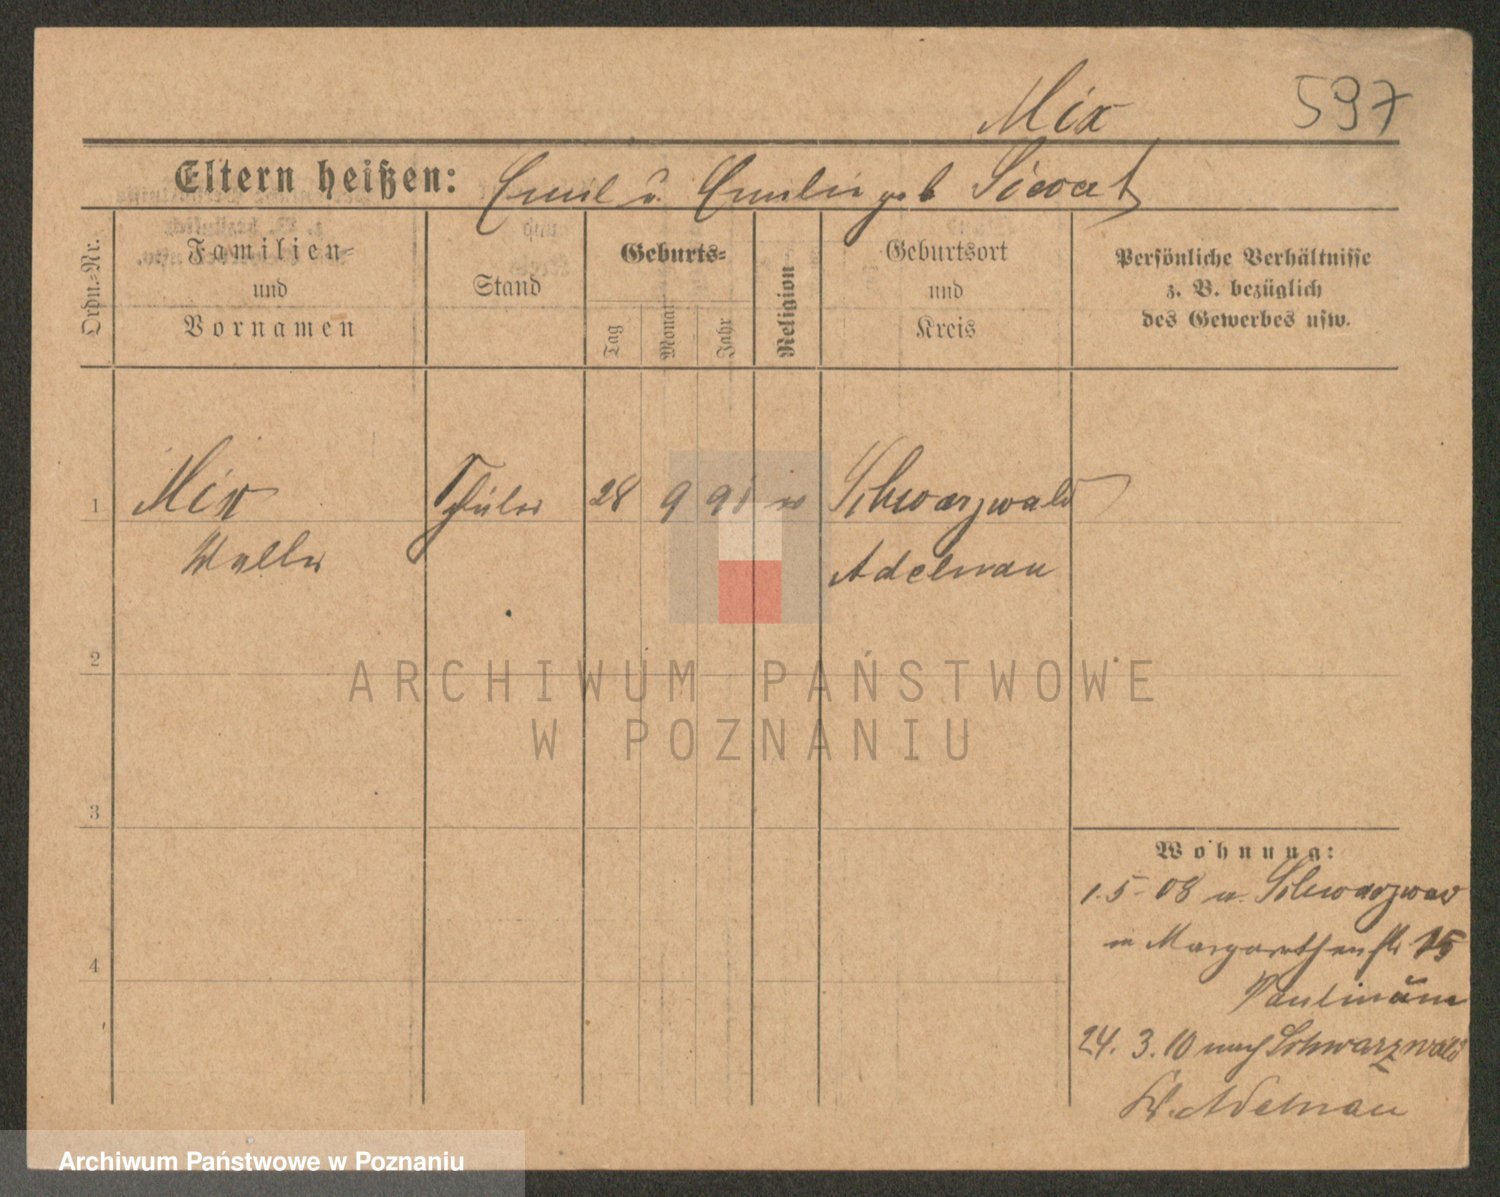 Mix 597
Eltern heißen: Emil u. Emilie geb Siewert
Ordn.-Nr.
Familien- und Vornamen
Stand
Geburts-
Tag
Monat
Jahr
Religion
Geburtsort und Kreis
Persönliche Verhältnisse
z. B. bezüglich
des Gewerbes usw.
1 Mix Schüler 28 9 91 Schwarzwald
Walter Adelnau
2
3
4
Wohnung:
1.5-08 v. Schwarzwald
in Margarethenstr 15
24. 3. 10 nach Schwarzwald
Kr. Adelnau
ARCHIWUM PAŃSTWOWE
W POZNANIU
Archiwum Państwowe w Poznaniu